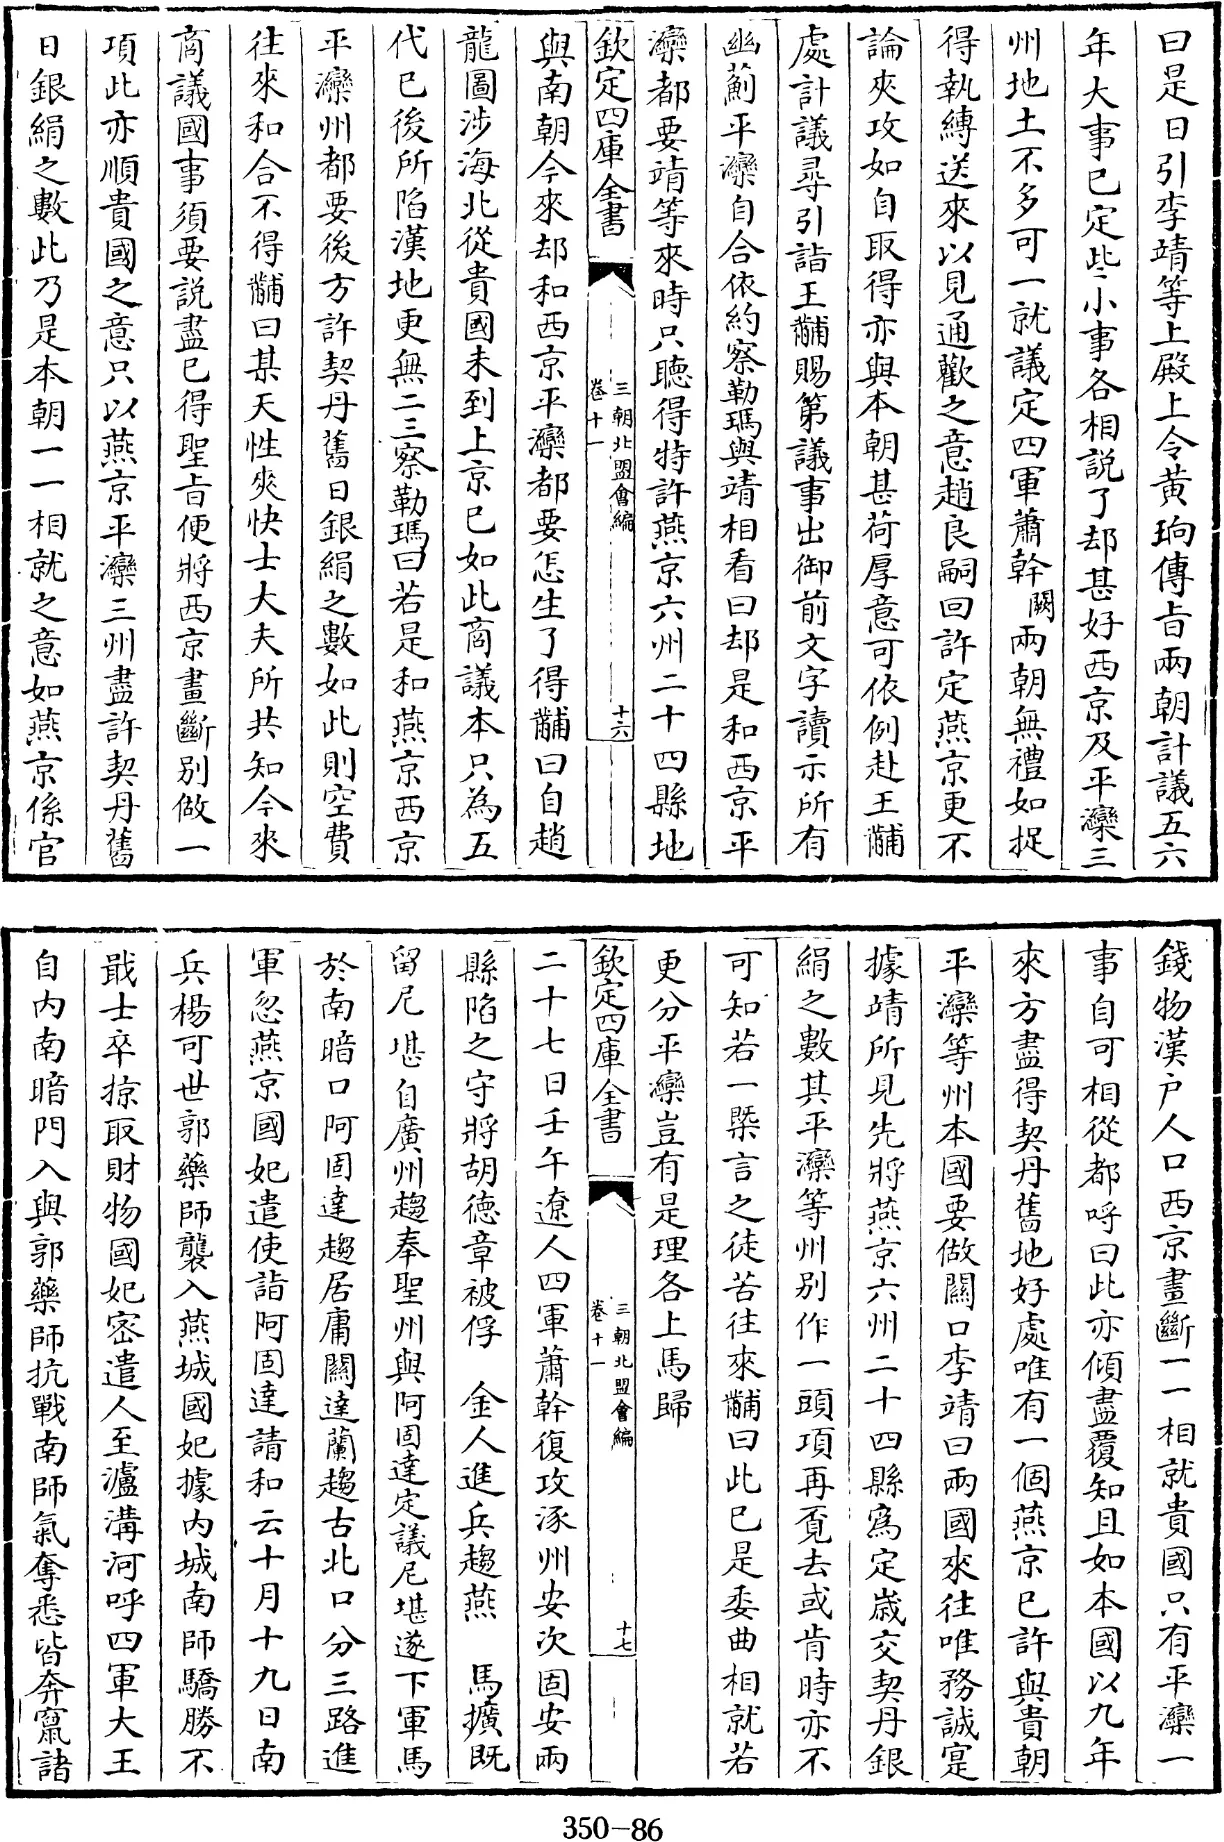 曰是日引李靖等上殿上令黄珦傳旨兩朝計議五六
年大事已定些小事各相説了却甚好西京及平灤三
州地土不多可一就議定四軍蕭幹闕兩朝無禮如捉
得執縛送來以見通歡之意趙良嗣回許定燕京更不
論夾攻如自取得亦與本朝甚荷厚意可依例赴王黼
處計議尋引詣王黼賜第議事出御前文字讀示所有
幽薊平灤自合依約察勒瑪與靖相看曰却是和西京平
灤都要靖等來時只聽得特許燕京六州二十四縣地
欽定四庫全書
三朝北盟會編
卷十一
十六
與南朝今來却和西京平灤都要怎生了得黼曰自趙
龍圖涉海北從貴國未到上京已如此商議本只為五
代已後所陷漢地更無二三察勒瑪曰若是和燕京西京
平灤州都要後方許契丹舊日銀絹之數如此則空費
往來和合不得黼曰某天性爽快士大夫所共知今來
商議國事須要説盡已得聖旨便將西京畫斷别做一
項此亦順貴國之意只以燕京平灤三州盡許契丹舊
日銀絹之數此乃是本朝一一相就之意如燕京係官
錢物漢户人口西京畫斷一一相就貴國只有平灤一
事自可相從都呼曰此亦傾盡覆知且如本國以九年
來方盡得契丹舊地好處唯有一個燕京已許與貴朝
平灤等州本國要做關口李靖曰兩國來往唯務誠寔
據靖所見先將燕京六州二十四縣為定歲交契丹銀
絹之數其平灤等州别作一頭項再覔去或肯時亦不
可知若一槩言之徒苦往來黼曰此已是委曲相就若
更分平灤豈有是理各上馬歸
欽定四庫全書
三朝北盟會編
卷十一
十七
二十七日壬午遼人四軍蕭幹復攻涿州安次固安兩
縣陷之守將胡德章被俘　金人進兵趨燕　馬擴既
留尼堪自廣州趨奉聖州與阿固達定議尼堪遂下軍馬
於南暗口阿固達趨居庸關達蘭趨古北口分三路進
軍忽燕京國妃遣使詣阿固達請和云十月十九日南
兵楊可世郭藥師襲入燕城國妃據内城南師驕勝不
戢士卒掠取財物國妃密遣人至瀘溝河呼四軍大王
自内南暗門入與郭藥師抗戰南師氣奪悉皆奔竄諸
350-86